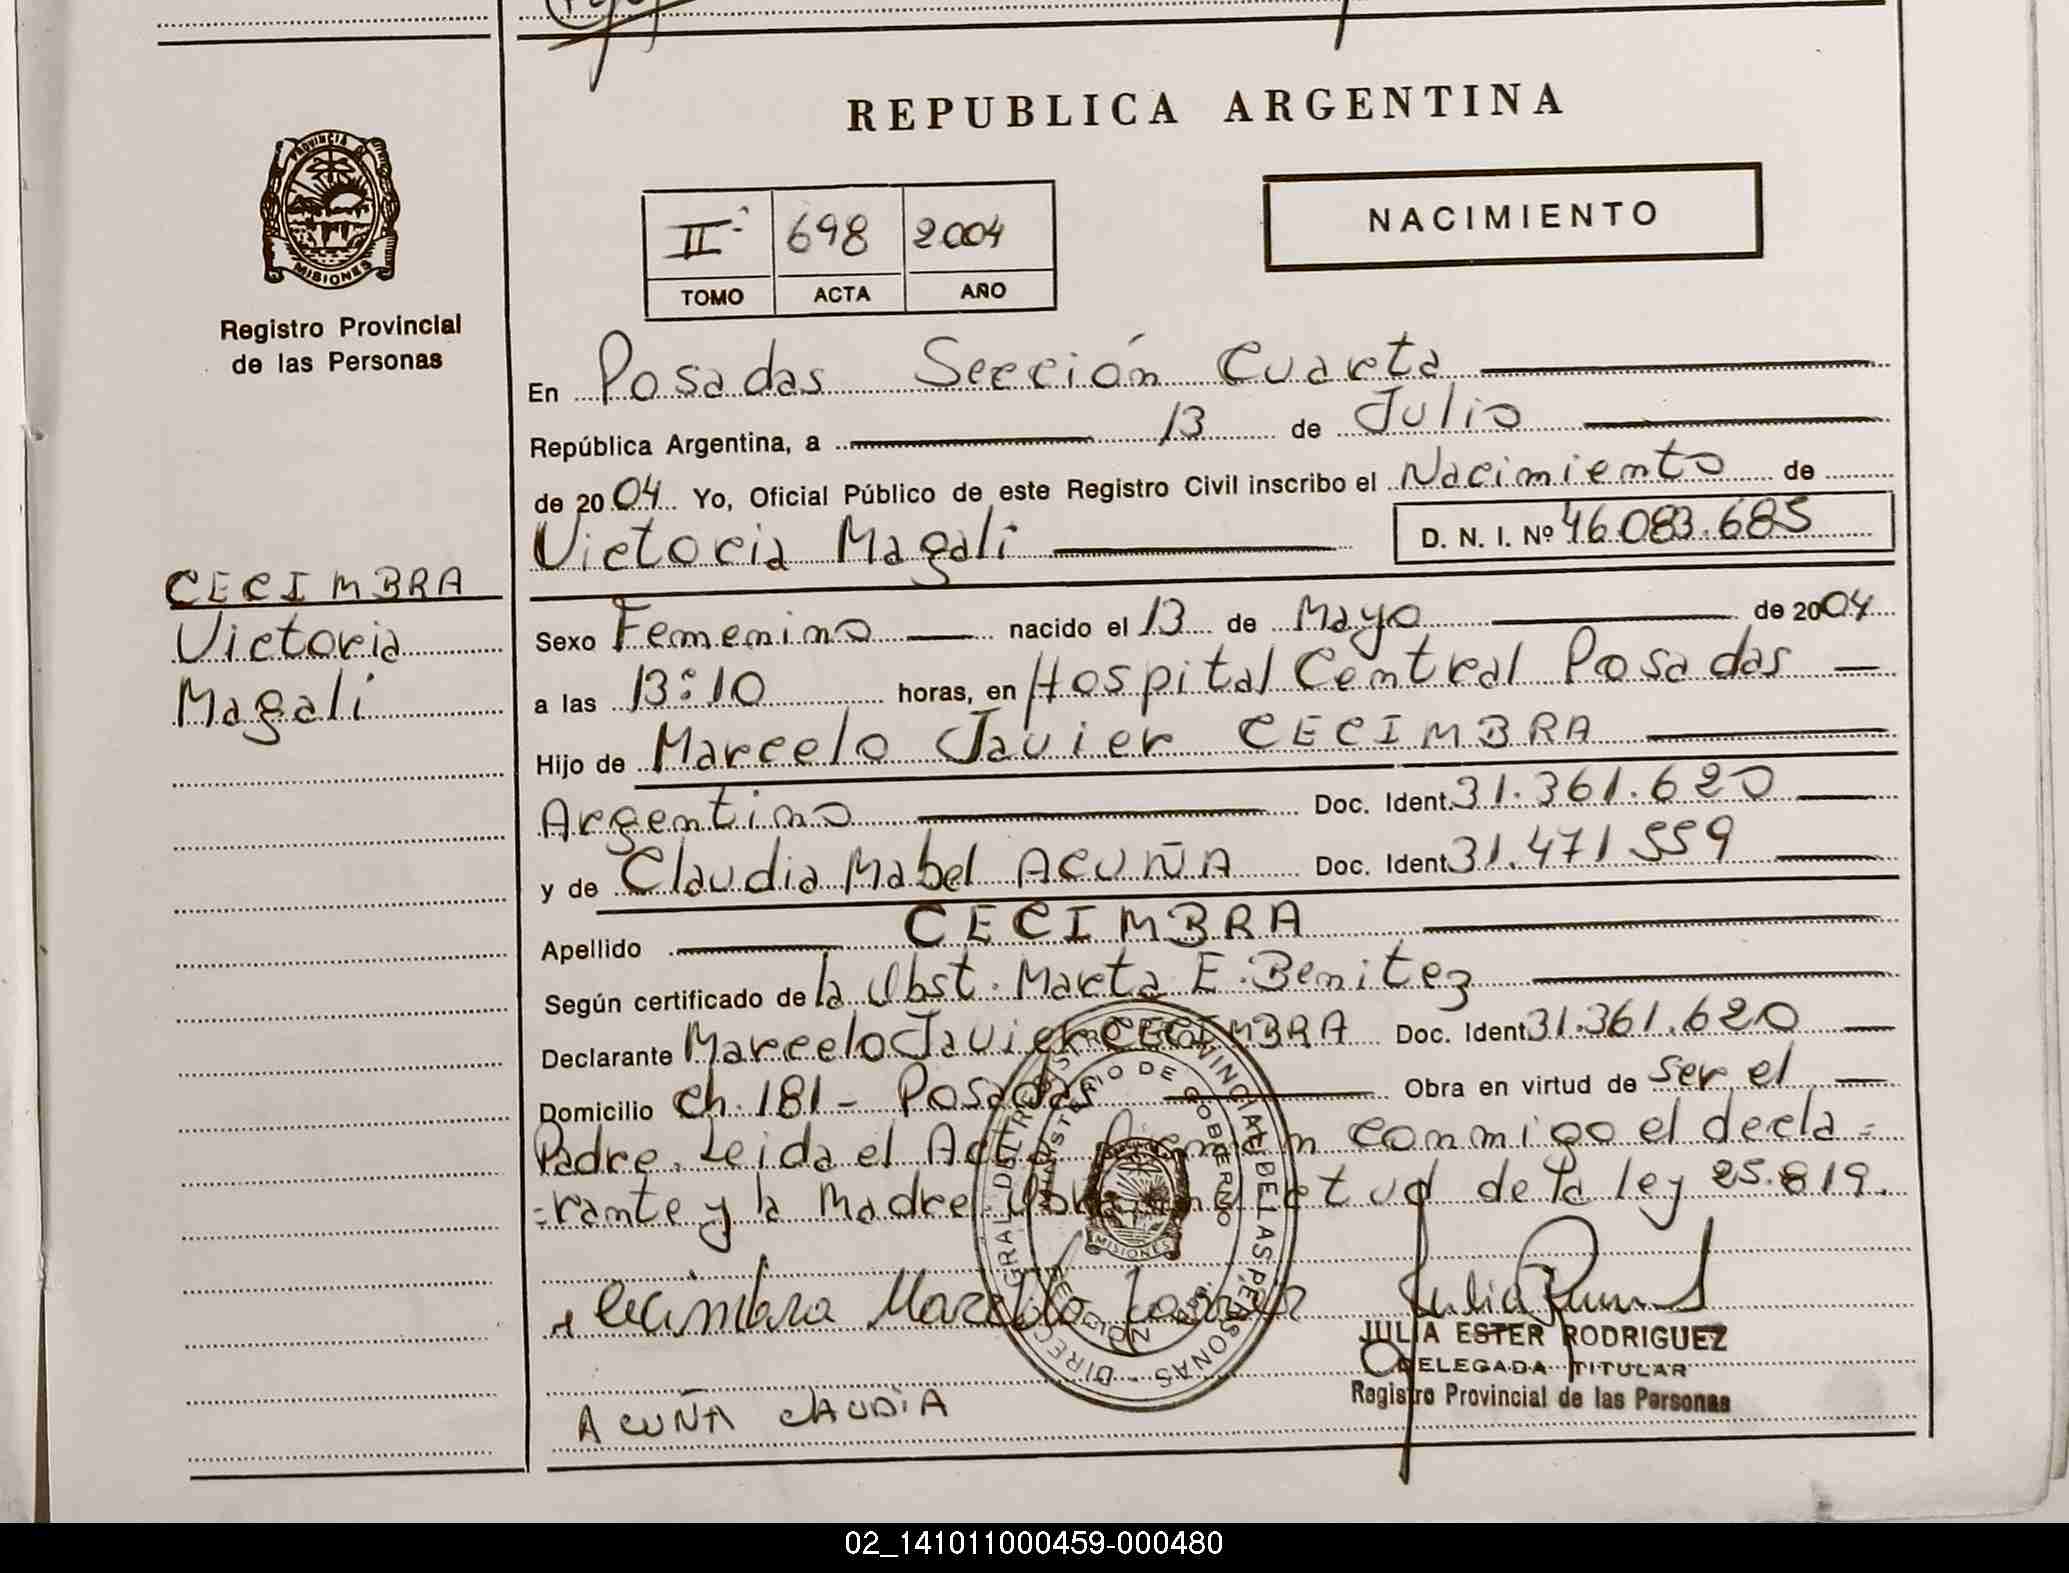 REPUBLICA ARGENTINA
PROVINCIA DE
MISIONES
Registro Provincial
de las Personas
II 698 2004
TOMO ACTA AÑO
NACIMIENTO
En Posadas Sección Cuarta
República Argentina, a 13 de Julio
de 2004 Yo, Oficial Público de este Registro Civil inscribo el Nacimiento de
Victoria Magali D. N. I. Nº 46.083.685
CECIMBRA
Victoria
Magali
Sexo Femenino nacido el 13 de Mayo de 2004
a las 13:10 horas, en Hospital Central Posadas
Hijo de Marcelo Javier CECIMBRA
Argentino Doc. Ident. 31.361.620
y de Claudia Mabel ACUÑA Doc. Ident. 31.471.559
Apellido CECIMBRA
Según certificado de la Obst. Marta E. Benitez
Declarante Marcelo Javier CECIMBRA Doc. Ident 31.361.620
Domicilio Ch. 181 - Posadas Obra en virtud de ser el
Padre. Leida el Acta Firman conmigo el decla=
=rante y la Madre Obra en virtud de la ley 25.819.
DIREC. GRAL. DEL REGISTRO PROVINCIAL DE LAS PERSONAS
MINISTERIO DE GOBIERNO
MISIONES
Cecimbra Marcelo Javier
JULIA ESTER RODRIGUEZ
DELEGADA TITULAR
Registro Provincial de las Personas
ACUÑA CLAUDIA
02_141011000459-000480